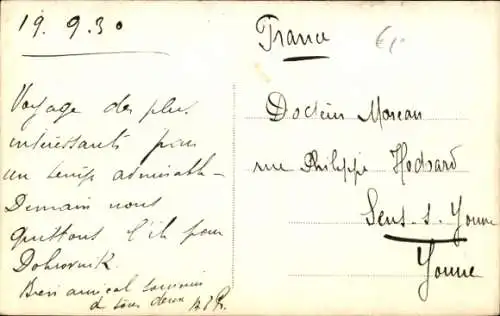 19.9.30
France
Voyage des plus
intéressants par
un temps admirable -
Demain nous
quittons l'île pour
Dobrovnik.
Bien amical souvenir
de tous deux
Docteur Moreau
rue Philippe Hodoard
Sens-s-Yonne
Yonne